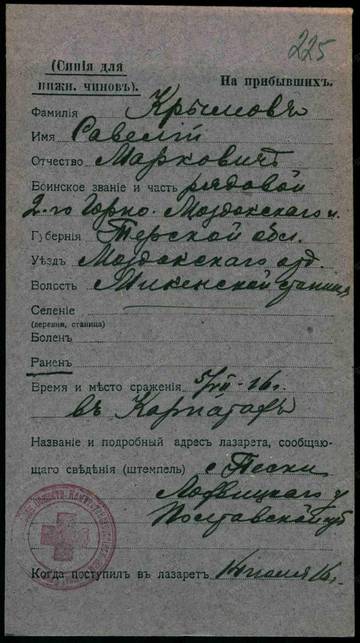 225
(Синія для нижн. чиновъ).
На прибывшихъ.
Фамилія Крымовъ
Имя Савелій
Отчество Марковичъ
Воинское званіе и часть рядовой
2-го Горно-Моздокскаго п.
Губернія Терской обл.
Уѣздъ Моздокскаго отд.
Волость Микенской станица
Селеніе
(деревня, станица)
Боленъ
Раненъ
Время и мѣсто сраженія 5/VII-16 г.
въ Карпатахъ
Названіе и подробный адресъ лазарета, сообщаю-
щаго свѣдѣнія (штемпель) с. Пески
Лохвицкаго у
Полтавской губ
Когда поступилъ въ лазаретъ 14 июля 16 г.